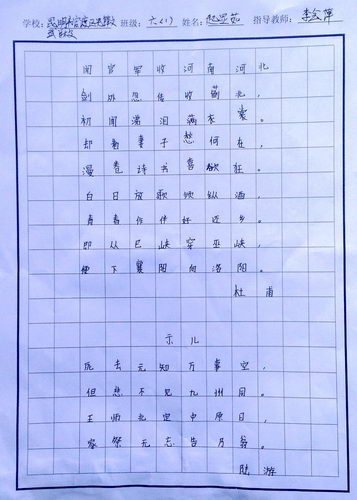 学校: 班级:六(1) 姓名:赵 茹 指导教师:李会萍
闻官军收河南河北
剑外忽传收蓟北,
初闻涕泪满衣裳。
却看妻子愁何在,
漫卷诗书喜欲狂。
白日放歌须纵酒,
青春作伴好还乡。
即从巴峡穿巫峡,
便下襄阳向洛阳。
杜甫
示儿
死去元知万事空,
但悲不见九州同。
王师北定中原日,
家祭无忘告乃翁。
陆游